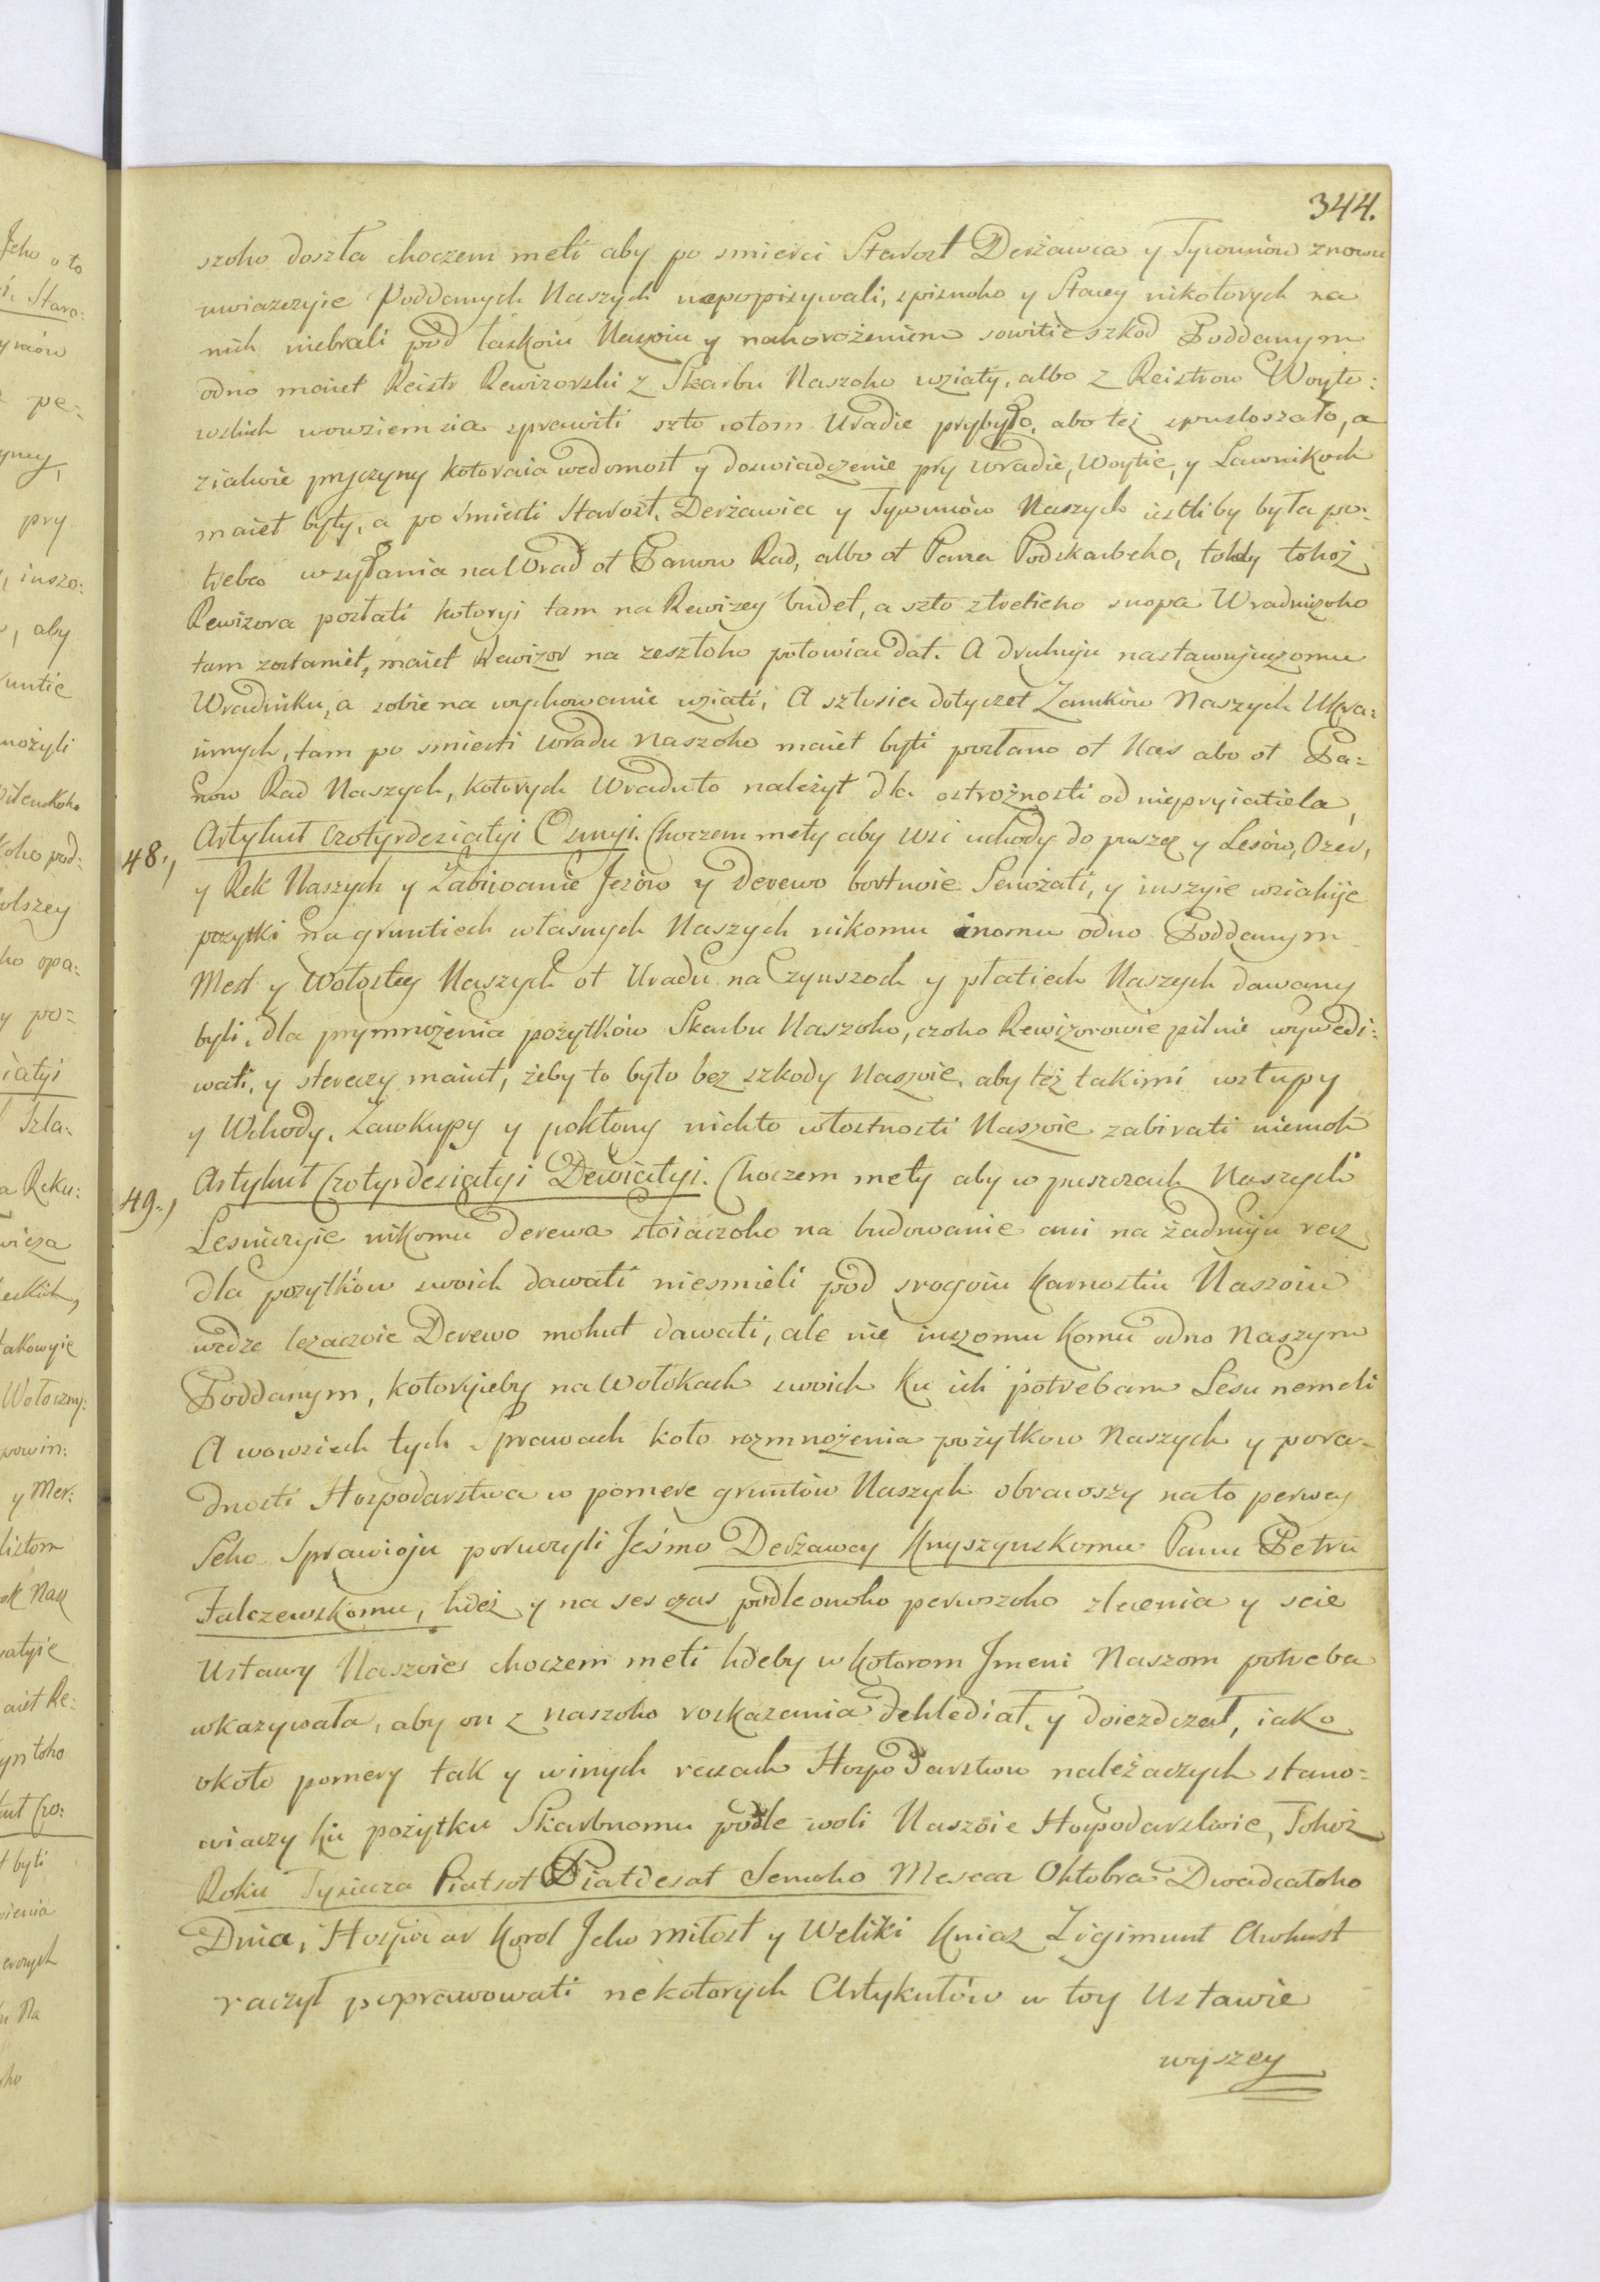 344.
szoho doszła choczem meti aby po smierci Starost Derżawca y Tywunów znowu
uwiazczyie Poddanych Naszych niepopisywali, spisnoho y Stacey nikotorych na
nich niebrali pod łaskoiu Naszoiu y nahorożeniem sowitie szkod Poddanym
odno maiet Reistr Rewizorski z Skarbu Naszoho wziaty, albo z Reistrow Woyto:
wskich wowsiem sia sprawiti szto wtom Uradie prybyło, abo też spustoszało, a
ziakoie pryczyny kotoraia wedomost y doswiadczenie pry Uradie, Woytie, y Lawnikoch
maiet byty, a po smierti Starost, Derżawiec y Tywunów Naszych iestliby była po:
treba wsyłania na Urad ot Panow Rad, albo ot Pana Podskarbeho, tohdy tohoż
Rewizora posłati kotoryi tam na Rewizey budet, a szto ztretieho snopa Uradniczoho
tam zostaniet, maiet Rewizor na zeszłoho połowicu dat. A druhuju nastawujuczomu
Wradniku, a sobie na wychowanie wziati, A sztosia dotyczet Zamków Naszych Ukra:
innych, tam po smierti Uradu Naszoho maiet byti posłano ot Nas abo ot Pa=
now Rad Naszych, kotorych Uraduto należyt dla ostrożnosti od niepryiatiela,
48., Artykuł Czotyrdesiatyi Osmyi. Choczem mety aby wsi uchody do puszcz y Lesów, Ozer,
y Rek Naszych y Zabiwanie Jezów y Derewo bortnoie Senożati, y inszyie wsiakije
pożytki na gruntiech własnych Naszych nikomu inomu odno Poddanym
Mest y Wołostey Naszych ot Uradu na Czynszoch y płatiech Naszych dawany
byli, dla prymnożenia pożytków Skarbu Naszoho, czoho Rewizorowie pilnie wywedi:
wati, y stereczy maiut, żeby to było bez szkody Naszoie, aby też takimi wstupy
y Wchody, Zawkupy y pokłony nichto włostnosti Naszoie zabirati niemoh
49., Artykuł Czotyrdesiatyi Dewiatyi. Choczem mety aby w puszczach Naszych
Lesniczyie nikomu derewa stoiaczoho na budowanie ani na żadnuju recz
dla pożytków swoich dawati niesmieli pod srogoiu karnostiu Naszoiu
wedże leżaczoie Derewo mohut dawati, ale nie inszomu komu odno Naszym
Poddanym, kotoryieby na Wołokach swoich ku ich potrebam Lesu nemeli
A wowsiech tych Sprawach koło rozmnożenia pożytkow Naszych y pora=
dnosti Hospodarstwa w pomere gruntów Naszych obrawszy nato perwey
Seho Sprawoju poruczyli Jeśmo Derżawcy Knyszynskomu Panu Petru
Falczewskomu, hdeż y na ses czas podle onoho perwszoho zlecenia y seie
Ustawy Naszoies choczem meti hdeby w kotorom Jmeni Naszom potreba
wkazywała, aby on z naszoho roskazania dohlediał, y doieżdczał, iako
około pomery tak y winych reczach Hospodarstwu należaczych stano=
wiaczy ku pożytku Skarbnomu podle woli Naszoie Hospodarskoie, Tohoż
Roku Tysiacza Piatsot Piatdesat Semoho Mesca Oktobra Dwadcatoho
Dnia, Hospodar Korol Jeho Miłost y Weliki Kniaz Zigimunt Awhust
raczył poprawowati nekotorych Artykułów w toy Ustawie
wyszey